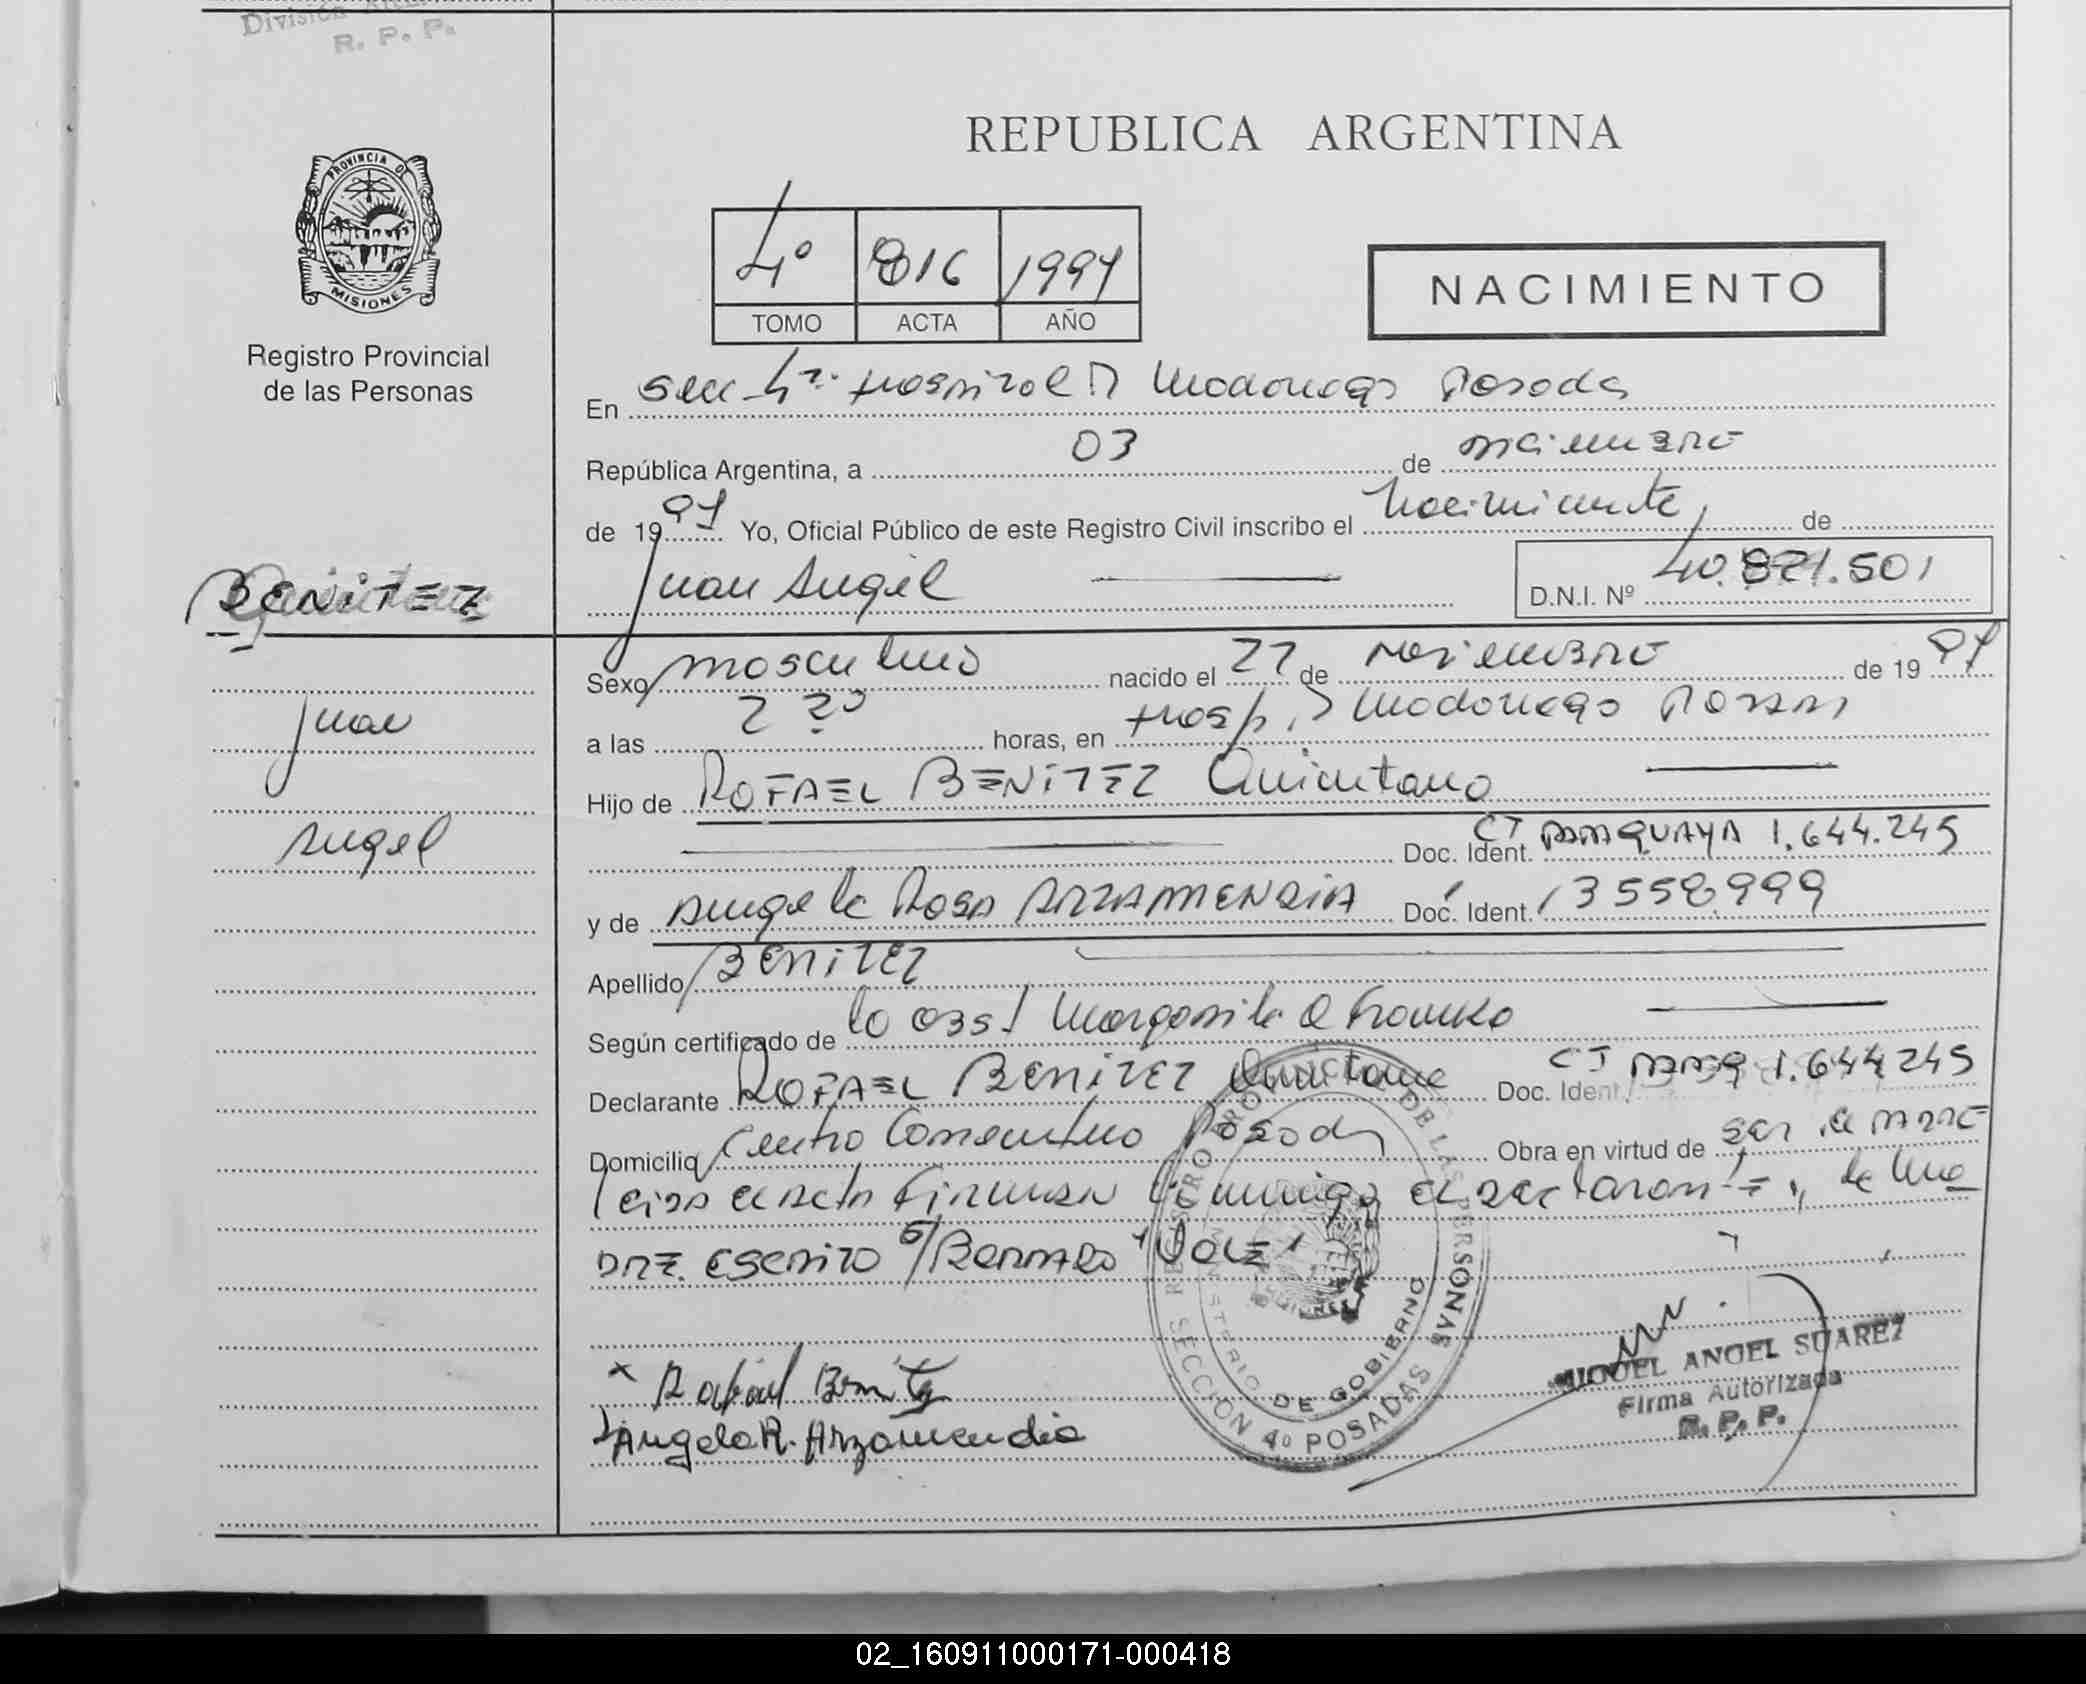 División
R. P. P.
PROVINCIA DE
MISIONES
Registro Provincial
de las Personas
REPUBLICA ARGENTINA
4º 816 1997
TOMO ACTA AÑO
NACIMIENTO
En Secc 4ª Hospital R Madariaga Posadas
República Argentina, a 03 de Diciembre
de 1997 Yo, Oficial Público de este Registro Civil inscribo el Nacimiento de
Juan Angel D.N.I. Nº 40.821.501
BENITEZ
Juan
Angel
Sexo masculino nacido el 27 de Noviembre de 1997
a las 2 20 horas, en Hosp. R Madariaga Posadas
Hijo de RAFAEL BENITEZ Quintana
Doc. Ident. CI PARAGUAYA 1.644.245
y de Angela Rosa ARZAMENDIA Doc. Ident. 13558.999
Apellido BENITEZ
Según certificado de la obst Margarita
Declarante RAFAEL BENITEZ Quintana Doc. Ident. CI PARAG 1.644.245
Domicilio Posadas Obra en virtud de ser el PADRE
Leida el Acta Firman Conmigo el declarante y la Ma
DRE. Escrito s/Borrado "Vale"
REGISTRO PROVINCIAL DE LAS PERSONAS
MINISTERIO DE GOBIERNO
MISIONES
SECCION 4º POSADAS
x Rafael Benitez
Angela R. Arzamendia
MIGUEL ANGEL SUAREZ
Firma Autorizada
R. P. P.
02_160911000171-000418